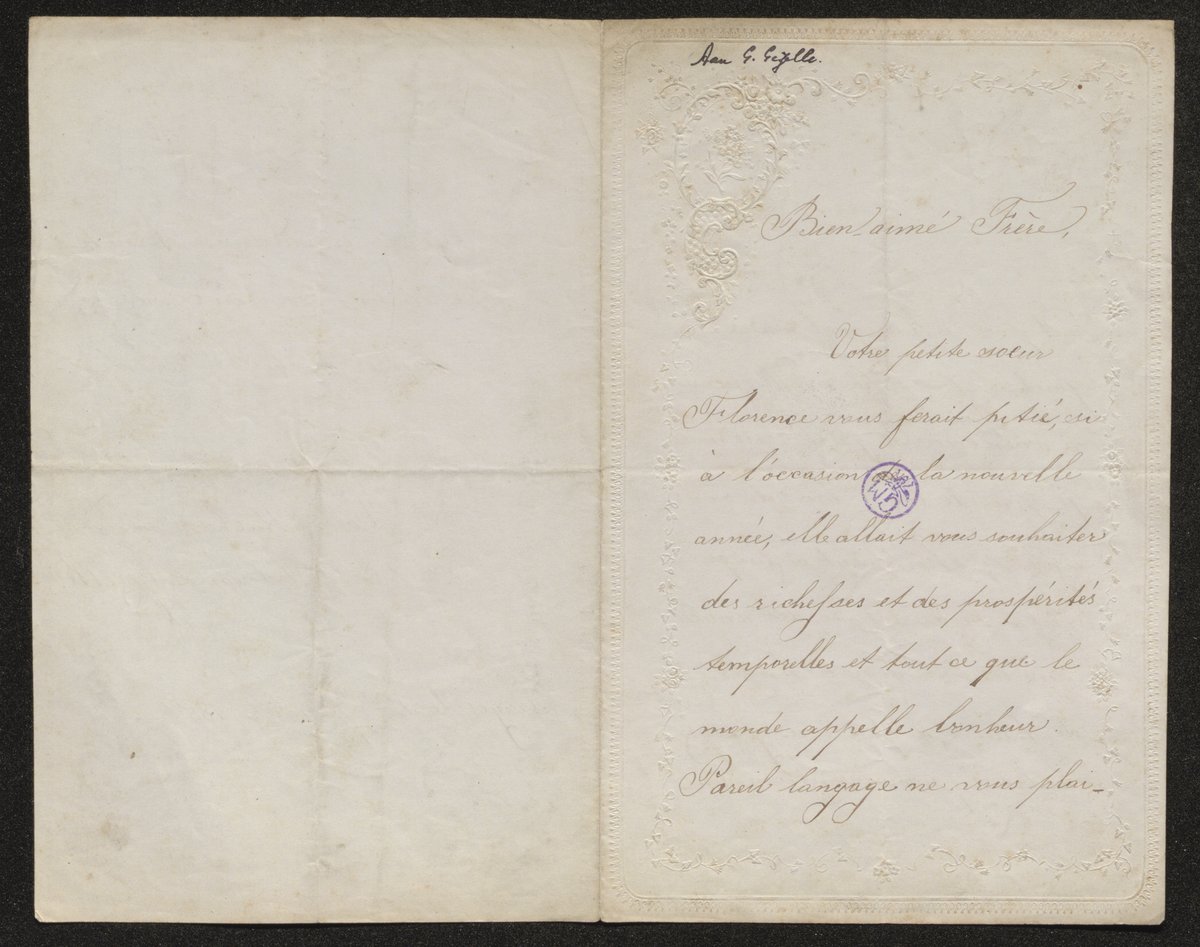 Aan G. Gezelle.
Bien-aimé Frère,
Votre petite sœur
Florence vous ferait pitié, si
à l'occasion de la nouvelle
année, elle allait vous souhaiter
des richesses et des prospérités
temporelles et tout ce que le
monde appelle bonheur.
Pareil langage ne vous plai-